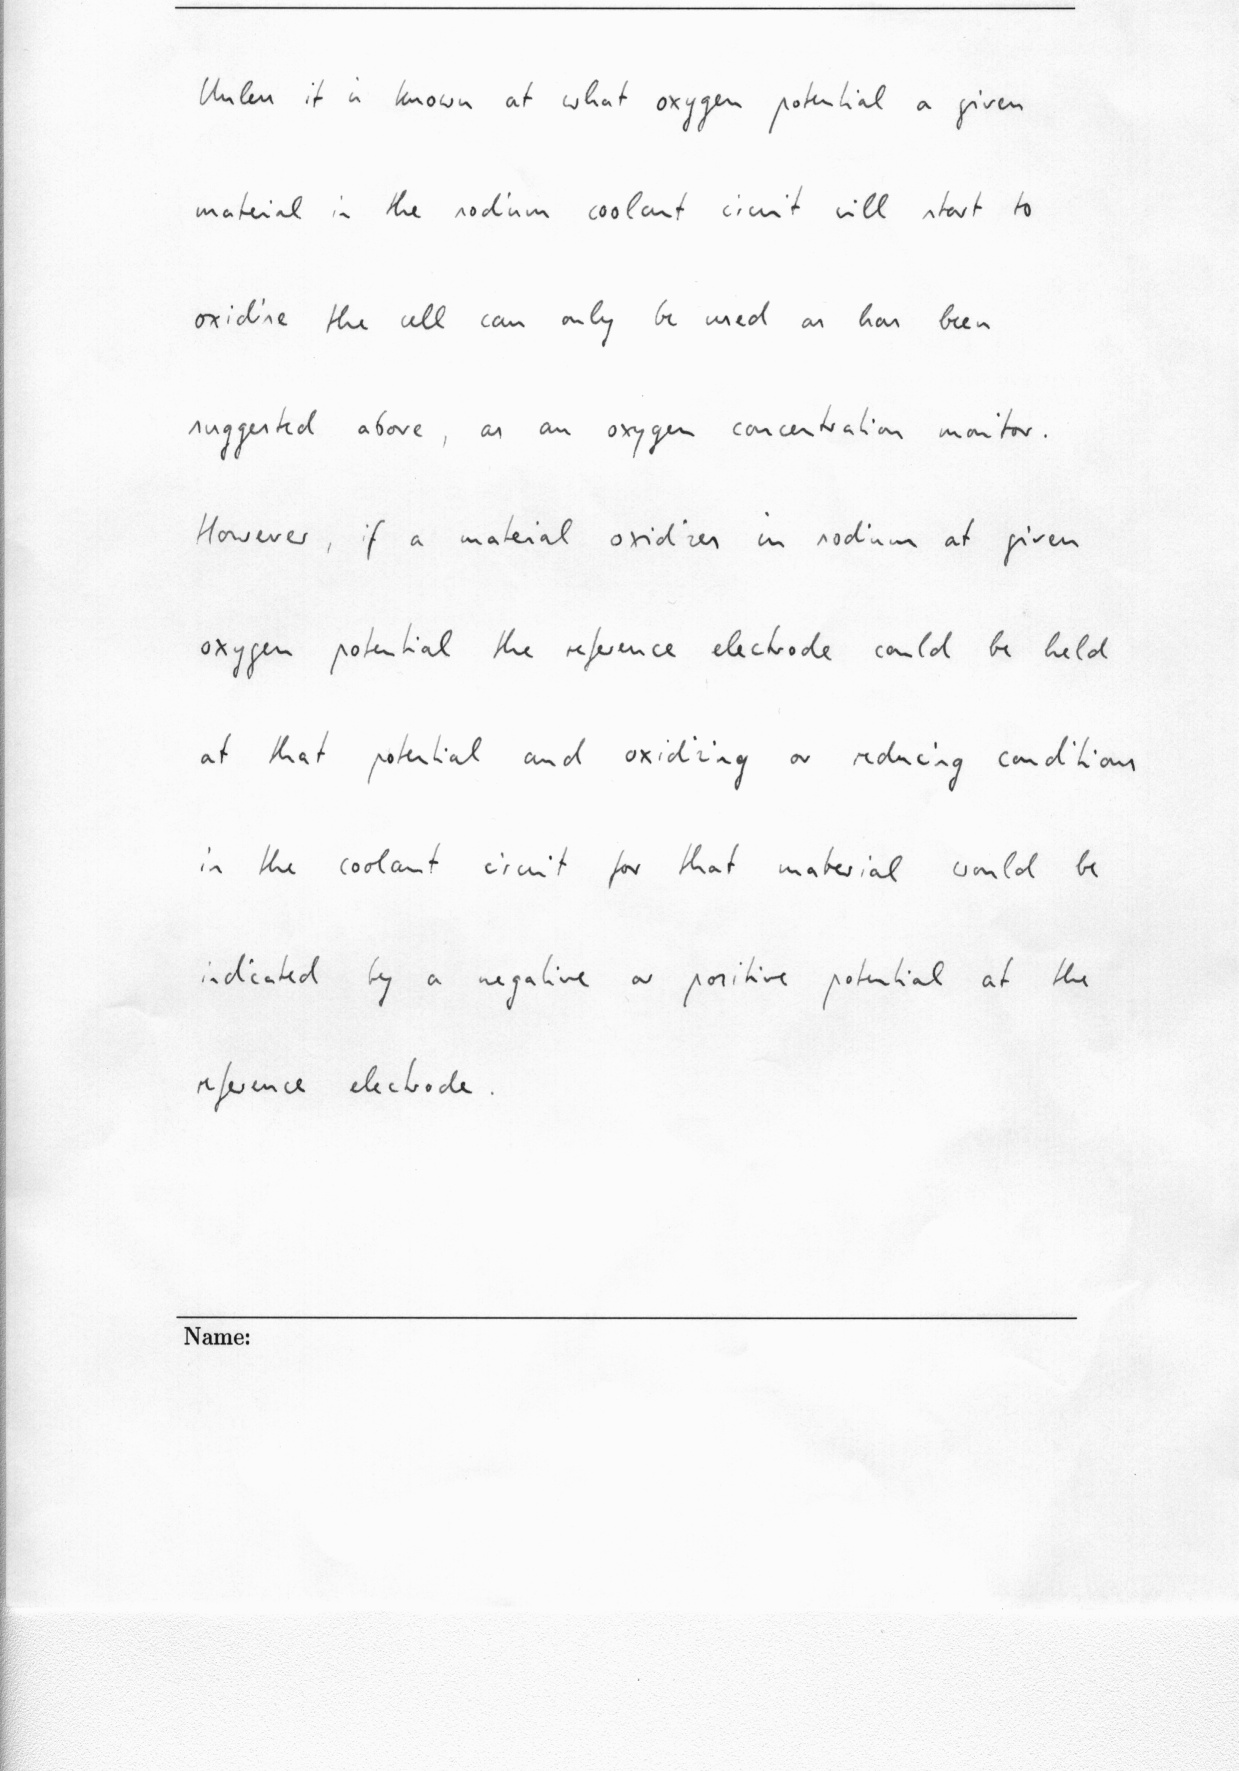 Unless it is known at what oxygen potential a given
material in the sodium coolant circuit will start to
oxidise the cell can only be used as has been
suggested above, as an oxygen concentration monitor.
However, if a material oxidizes in sodium at given
oxygen potential the reference electrode could be held
at that potential and oxidizing or reducing conditions
in the coolant circuit for that material would be
indicated by a negative or positive potential at the
reference electrode.
Name: